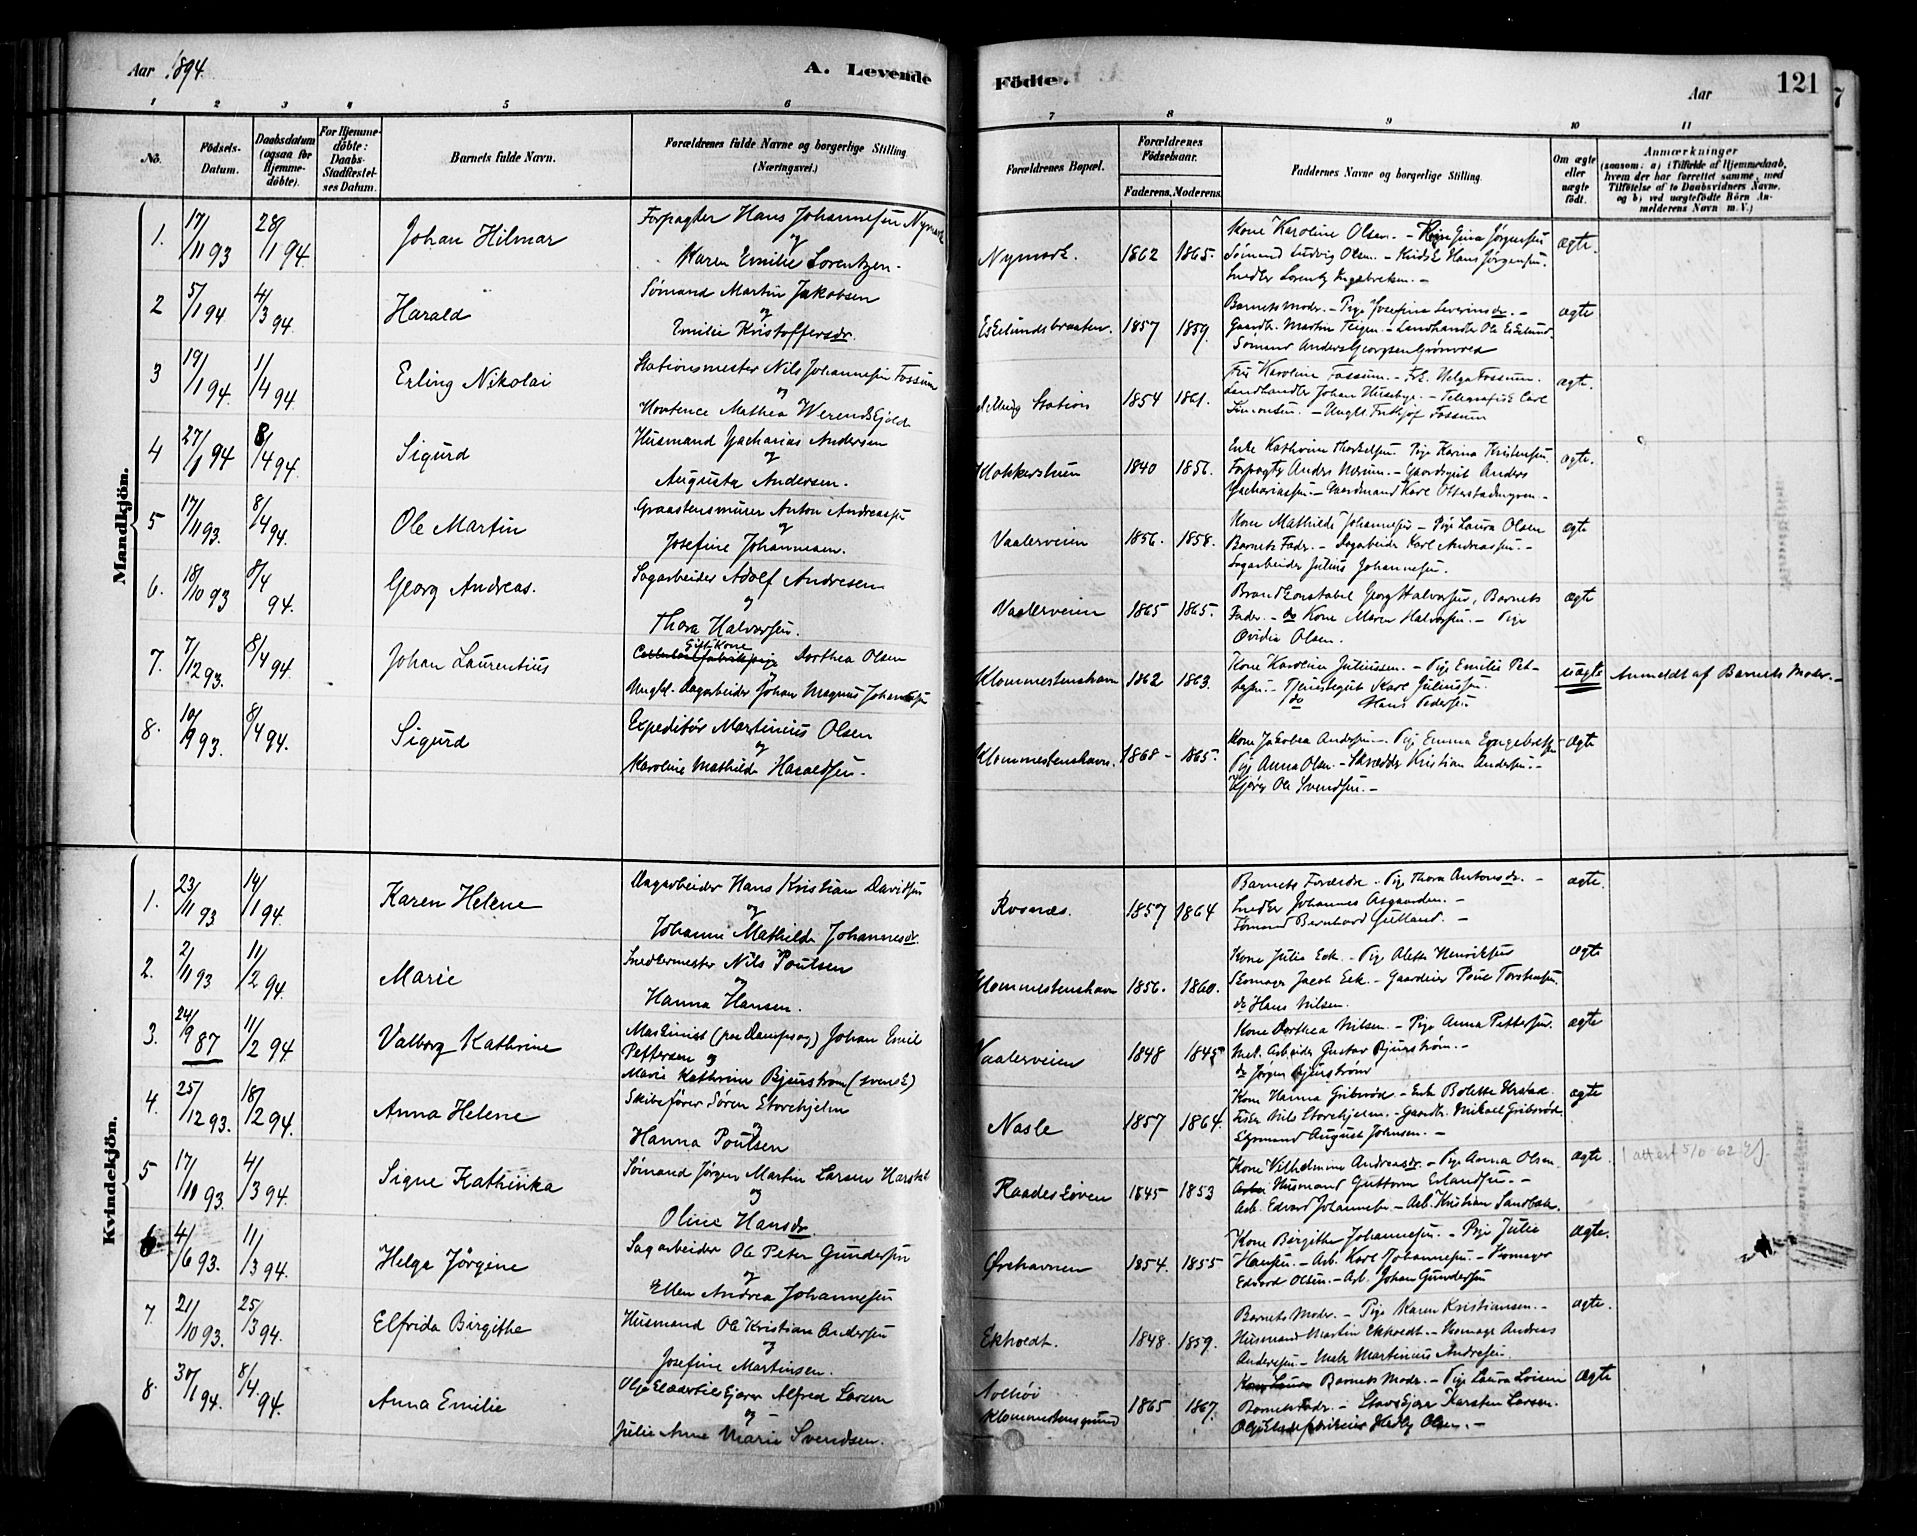 Aar 1894.
A. Levende
Födte.
Aar
121
1 2 3 4 5 6 7 8 9 10 11
No.
Födsels-Datum.
Daabsdatum (ogsaa for Hjemme-döbte).
For Hjemme-döbte: Daabs-Stadfestel-ses Datum.
Barnets fulde Navn.
Forældrenes fulde Navne og borgerlige Stilling (Næringsvei.)
Forældrenes Bopæl.
Forældrenes Födselsaar.
Faderens. Moderens.
Faddernes Navne og borgerlige Stilling.
Om ægte eller uægte födt.
Anmærkninger
(saasom: a) i Tilfælde af Hjemmedaab, hvem der har forrettet samme, med Tilföielse af to Daabsvidners Navne. og b) ved uægtefödte Börn An-melderens Navn m. V.)
Mandkjön.
1. 17/11 93 28/1 94. Johan Hilmar
Forpagter Hans Johannesen Nymark
og
Karen Emilie Lorentzen.
Nymark. 1862 1865.
Kone Karoline Olsen. - Gina Jørgensen
Sømand Ludvig Olsen. - Hans Jørgensen.
Snedker Lorentz Ingebretsen. -
ægte.
2 5/1 94 4/3 94. Harald
Sømand Martin Jakobsen
og
Emilie Kristoffersdr.
Eskelundsbraaten. 1857 1859.
Barnets Moder. - Pige Josefine Severinsdr. -
Gaardb. Martin Teigen. - Landhandler Ole Eskelund
Sømand Anders Georgsen Grønvold
ægte
3 19/1 94. 1/4 94. Erling Nikolai
Stationsmester Nils Johannesen Fossum
og
Hortence Mathea Werenskjold
Dilling Station 1854 1861.
Fru Karoline Fossum. - Frk. Helga Fossum.
Landhandler Johan Huseby. - Telegrafist Carl
Simonsen. - Ungk. Fritjof Fossum
ægte.
4 27/1 94 8/4 94. Sigurd
Husmand Zacharias Andersen
og
Augusta Andersen.
Klokkerstuen 1840 1856.
Enke Kathrine Thorkelsen. Pige Karina Kristensen.
Forpagter Anders Nærum. - Gaardsgut Anders
Zachariassen - Gaardmand Karl Otterstadmyren -
ægte.
5 17/11 93. 8/4 94. Ole Martin
Graastensmurer Anton Andreassen
og
Josefine Johannesen.
Vaalerveien 1856. 1858.
Kone Mathilde Johannesen - Pige Laura Olsen
Barnets Fader. - Dagarbeider Karl Andreassen. -
Sagarbeider Julius Johannesen.
ægte
6. 18/10 93 8/4 94. Georg Andreas.
Sagarbeider Adolf Andresen
og
Thora Halvorsen.
Vaalerveien 1865 1865.
Brandkonstabel Georg Halvorsen, Barnets
Fader. - do Kone Maren Halvorsen. - Pige
Ovidia Olsen.
ægte
7. 7/12 93. 8/4 94. Johan Laurentius
Gift Kone
Dorthea Olsen
og
Ungkl. Dagarbeider Johan Magnus Johannesen
Klommestenshavn 1862 1863.
Kone Karoline Juliussen. - Pige Emilie Pet-
tersen. - Tjenestegut Karl Juliussen.
do Hans Pedersen
uægte
Anmeldt af Barnets Moder. -
8. 10/9 93. 8/4 94. Sigurd
Expeditør Martinius Olsen
og
Karoline Mathilde Haraldsen.
Klommestenshavn. 1868 - 1865.
Kone Jakobea Andersen. - Pige Emma Engebretsen
Pige Anna Olsen. - Skrædder Kristian Andersen. -
Ole Svendsen. -
Ægte
Kvindekjön.
1. 23/11 93 14/1 94. Karen Helene
Dagarbeider Hans Kristian Davidsen
og
Johanne Mathilde Johannesdr.
Rosnæs. 1857 1864
Barnets Forældre. - Pige Thora Antonsdr. -
Snedker Johannes Asgaarden. -
Sømand Bernhard Gulland. -
ægte.
2. 2/11 93 11/2 94. Marie
Snedkermester Nils Poulsen
og
Hanna Hansen.
Klommestenshavn 1856. 1860.
Kone Julia Eck. - Pige Alette Henriksen
Skomager Jacob Eck. - Gaardeier Poul Torstensen.
do Hans Nilsen.
Ægte
3. 24/9 87 11/2 94 Valborg Kathrine
Maskinist (paa Dampsag) Johan Emil
Pettersen og
Marie Kathrine Bjurstrøm (svensk)
Vaalerveien 1848 1845
Kone Dorthea Nilsen. - Pige Anna Pettersen.
Mek. Arbeider Gustav Bjurstrøm. -
do Jørgen Bjurstrøm
ægte
4. 25/12 93. 18/2 94. Anna Helene
Skibsfører Søren Storehjelm
og
Hanna Poulsen
Nasle 1857 1864.
Kone Hanna Gribsrød -
Nils Storehjelm. - Gaardb. Mikael Gribsrød
Sømand August Johnsen. -
ægte
5 17/10 93. 4/3 94. Signe Kathinka
Sømand Jørgen Martin Larsen Harstad
og
Oline Hansdr.
1845 1853
Kone Vilhelmine Andreasdr. - Pige Anna Olsen.
Husmand Guttorm Erlandsen. -
Arb. Edvard Johannesen. - Arb. Kristian Sandbak.
ægte.
attest 5/10 62
6 4/6 93. 11/3 94. Helga Jörgine
Sagarbeider Ole Peter Gundersen
og
Ellen Andrea Johannesen
Ørehavnen 1854. 1855
Kone Birgithe Johannesen. - Pige Julie
Hansen. - Arb. Karl Johannesen. - Skomager
Edvard Olsen. - Arb. Johan Gundersen
Ægte.
7 21/10 93. 25/3 94. Elfrida Birgithe
Husmand Ole Kristian Andersen
og
Josefine Martinsen.
Ekholdt. 1848. 1859.
Barnets Moder. - Pige Karen Kristiansen. -
Husmand Martin Ekholdt. - Skomager Andreas
Andersen - Martinius Andresen.
ægte.
8 30/1 94. 8/4 94. Anna Emilie
Oljeklædefabrikejer Alfred Larsen
og
Julie Anne Marie Svendsen.
Solhøi
Klommestensgrund 1865 1867.
Barnets Moder. - Pige Laura Larsen
Barnets Fader. - Karsten Larsen.
Hedly Olsen. -
Ægte